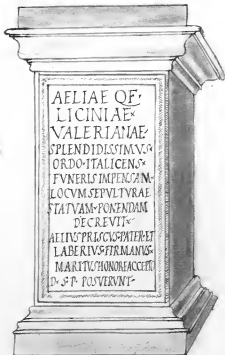 AELIAE QF·
LICINIAE
VALERIANAE
SPLENDIDISSIMVS
ORDO·ITALICENS
FVNERIS IMPENSAM
LOCVM SEPVLTVRAE
STATVAM PONENDAM
DECREVIT
AELIVS PRISCVS·PATER·ET
LABERIVS·FIRMANVS
MARITVS HONORE ACCEPTO
D·S·P·POSVERVNT